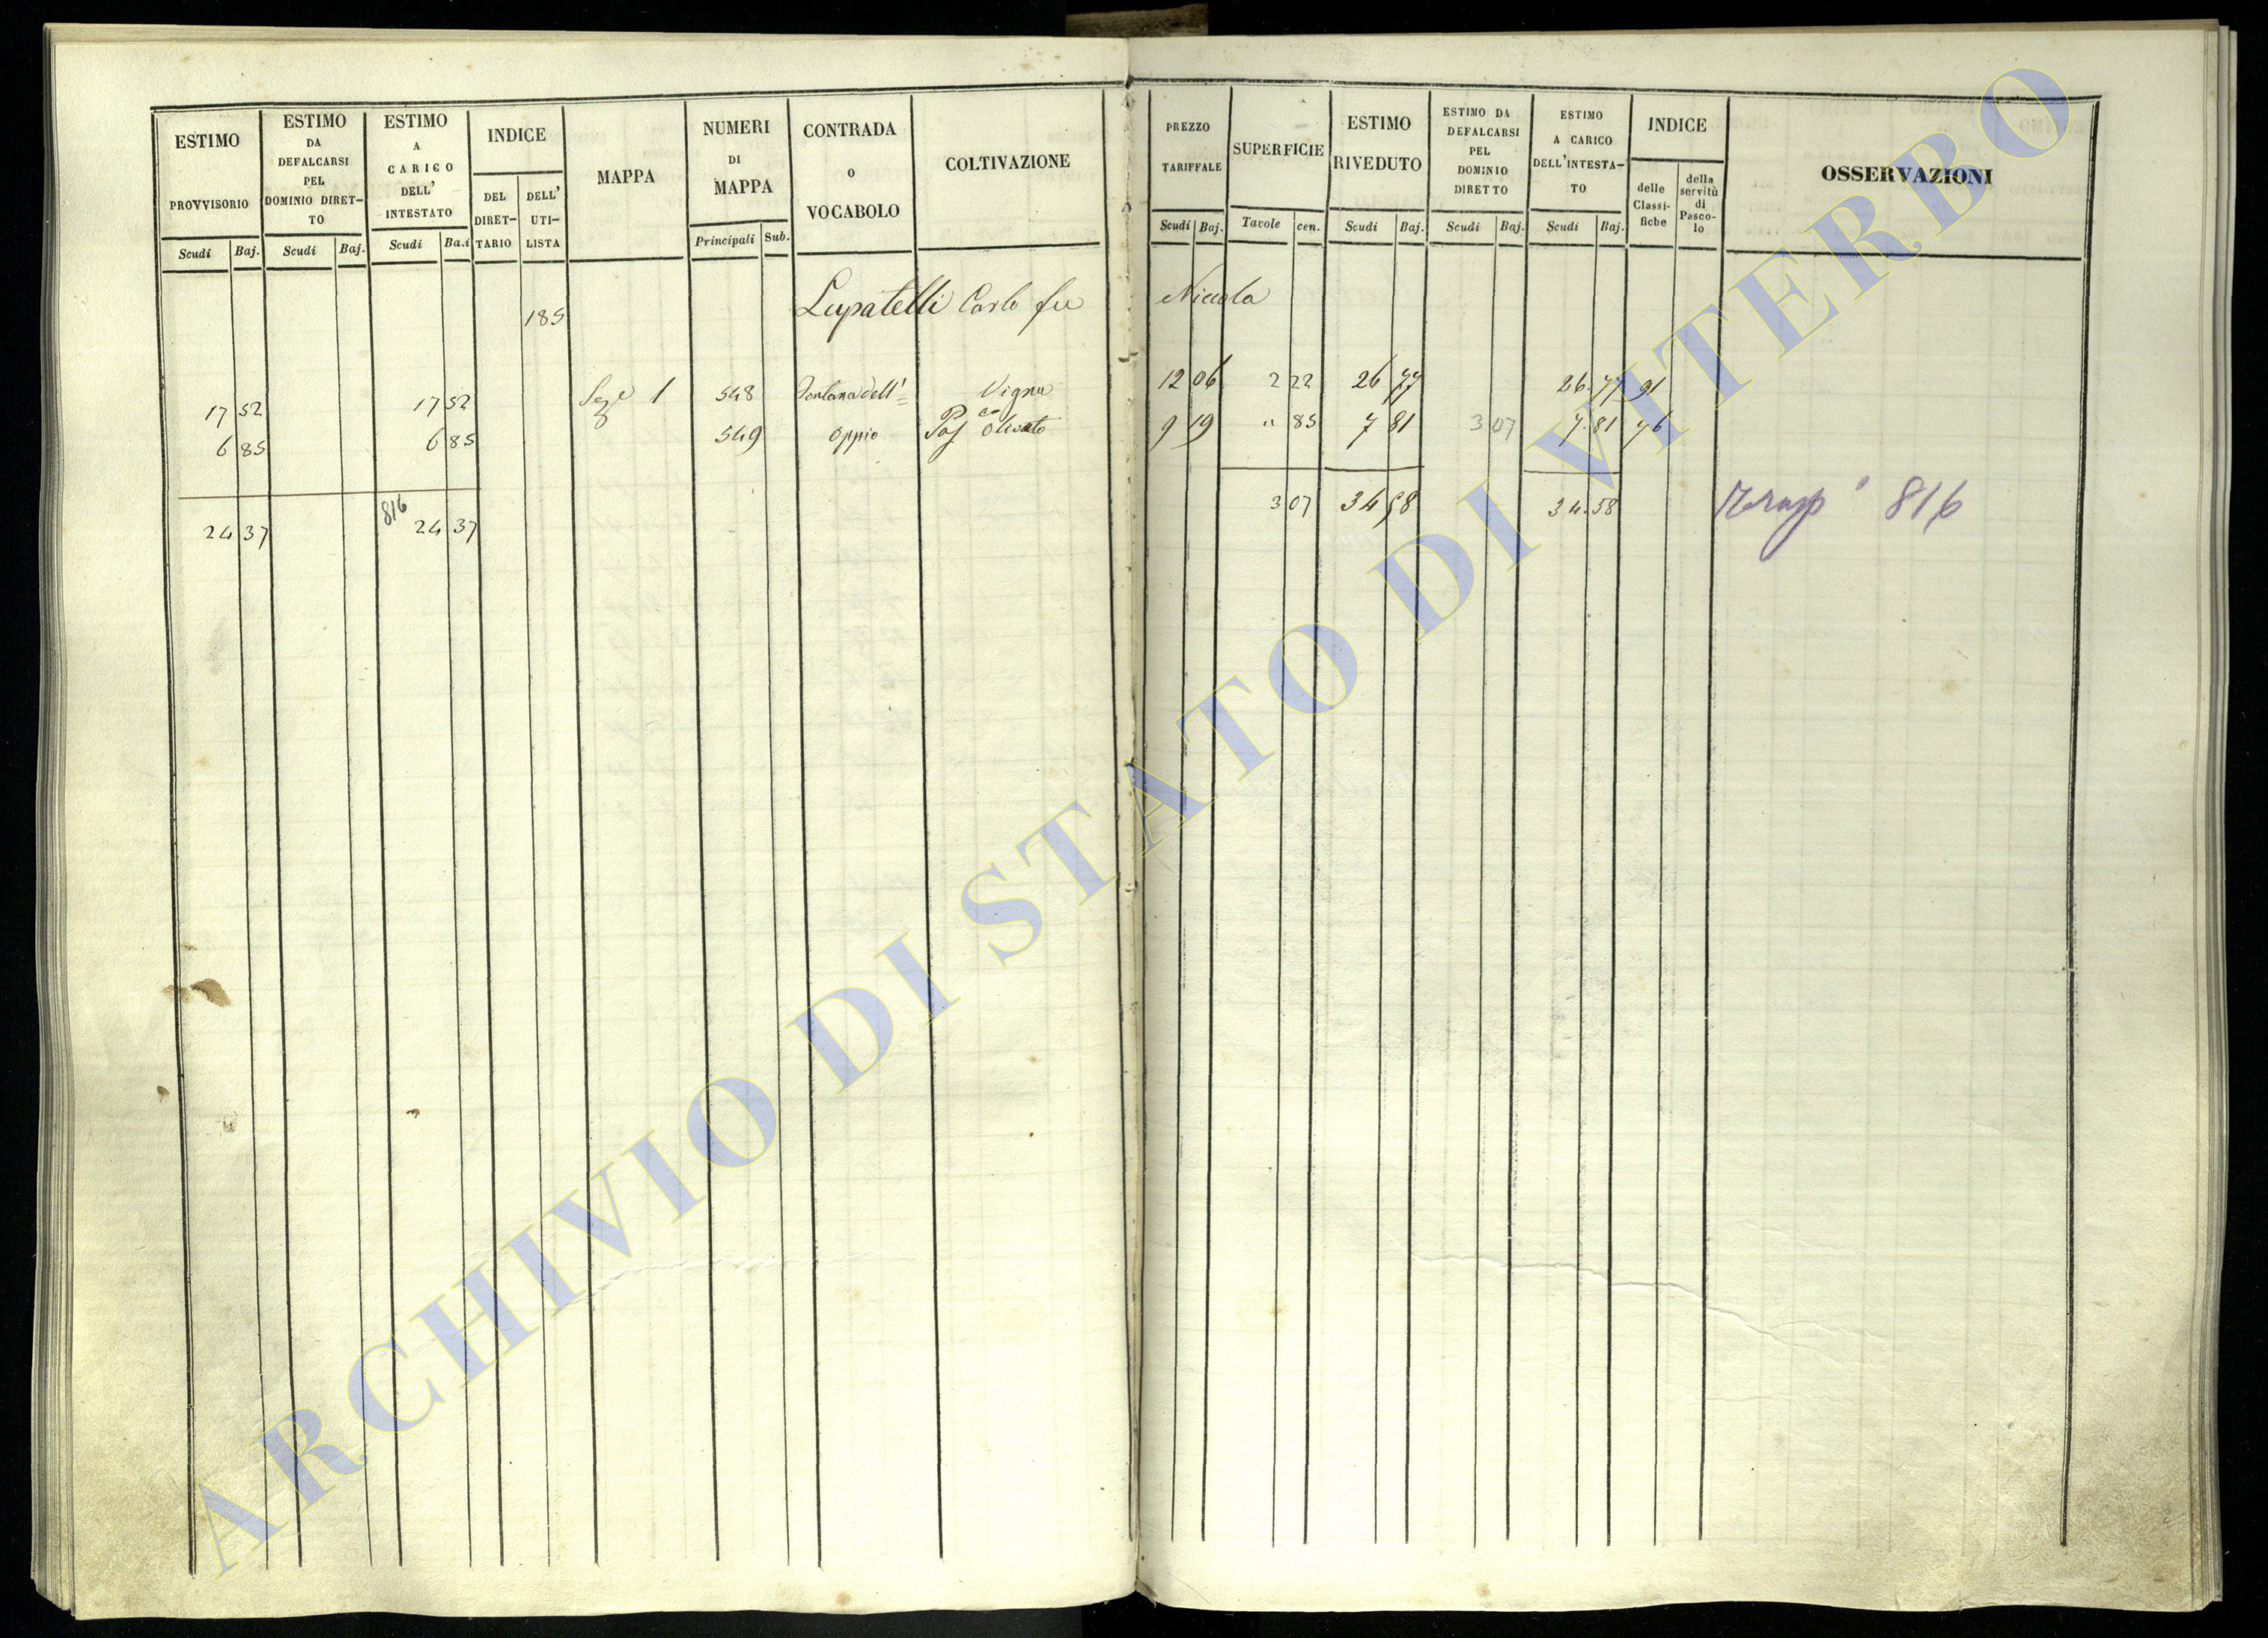 ESTIMO PROVVISORIO
Scudi Baj.
ESTIMO DA DEFALCARSI PEL DOMINIO DIRET-TO
Scudi Baj.
ESTIMO A CARICO DELL' INTESTATO
Scudi Ba.i
INDICE
DEL DIRET-TARIO
DELL' UTI-LISTA
MAPPA
NUMERI DI MAPPA
Principali Sub.
CONTRADA O VOCABOLO
COLTIVAZIONE
PREZZO TARIFFALE
Scudi Baj.
SUPERFICIE
Tavole cen.
ESTIMO RIVEDUTO
Scudi Baj.
ESTIMO DA DEFALCARSI PEL DOMINIO DIRETTO
Scudi Baj.
ESTIMO A CARICO DELL'INTESTA-TO
Scudi Baj.
INDICE
delle Classi-fiche
della servitù di Pasco-lo
OSSERVAZIONI
185 Lupatelli Carlo fu Nicola
17 52 17 52 1 548 Fontana dell'= Vigna 12 06 2 22 26 77 26.77 91
6 85 6 85 549 Oppio Pas co Olivato 9 19 " 85 7 81 3 07 7.81 76
24 37 816 24 37 3 07 34 58 34.58 816
ARCHIVIO DI STATO DI VITERBO